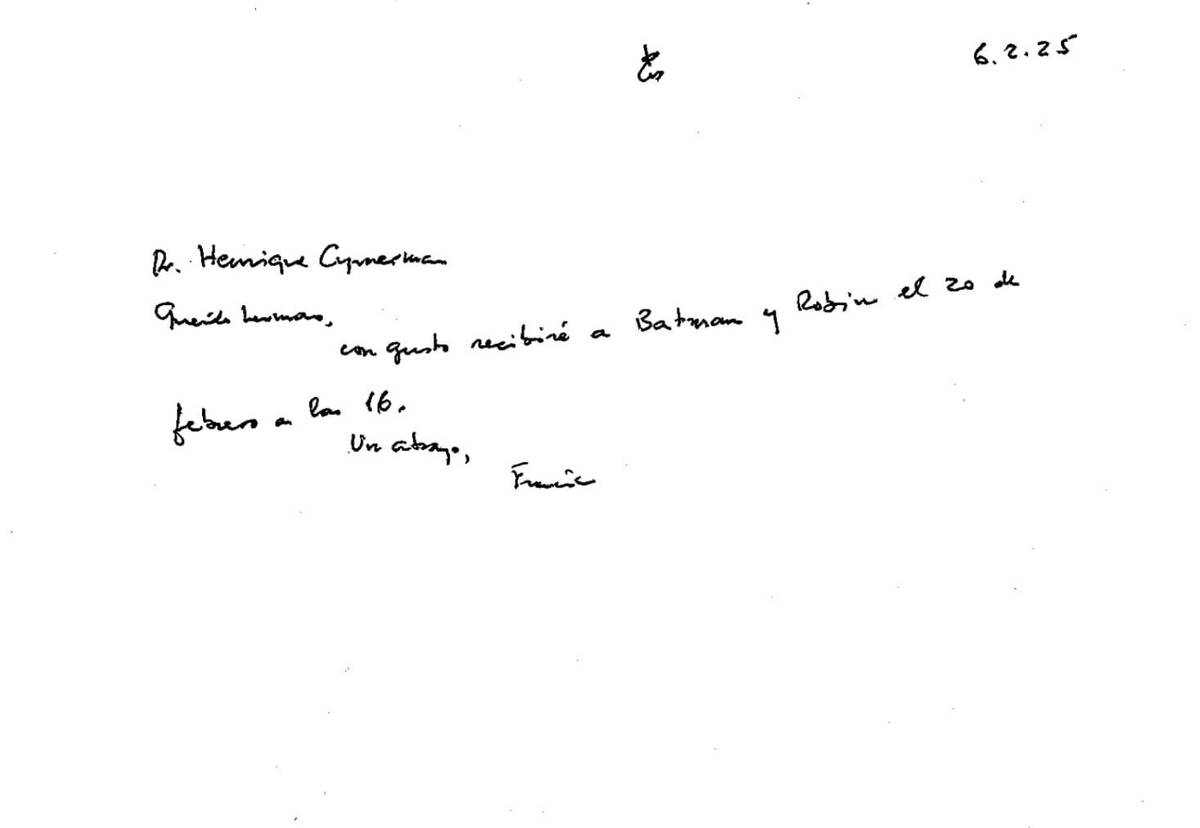 6.2.25
Dr. Henrique Cymerman
Querido hermano,
con gusto recibiré a Batman y Robin el 20 de
febrero a las 16.
Un abrazo,
Francisco